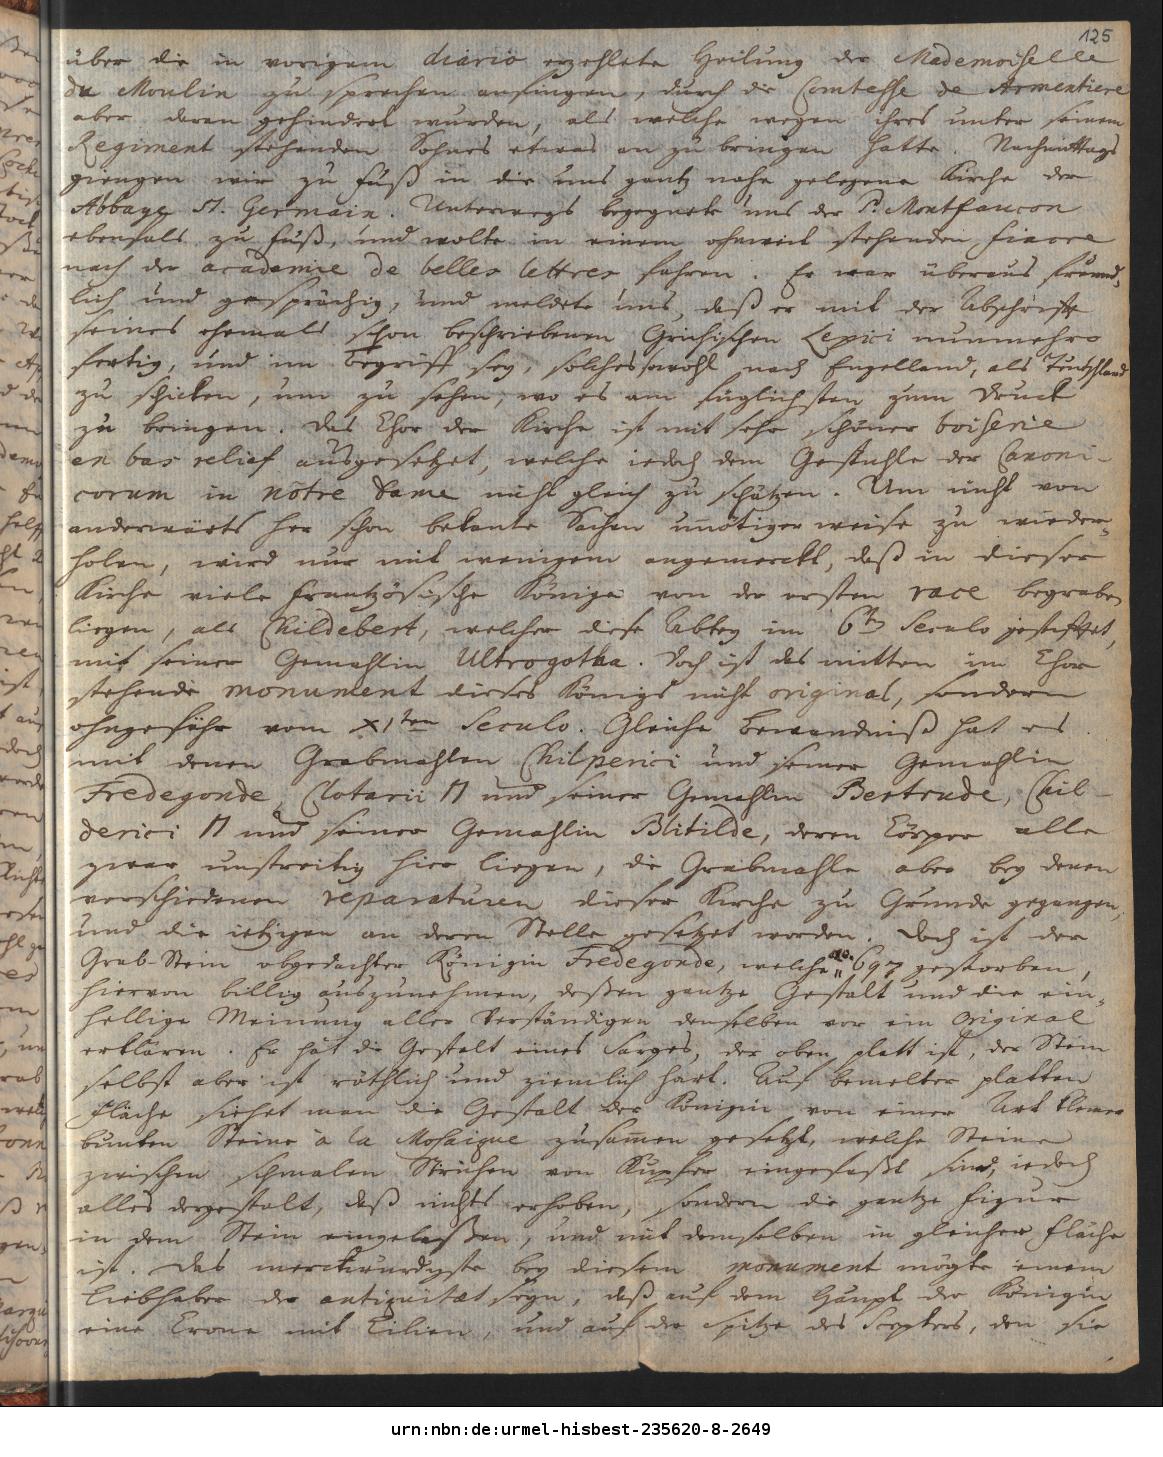 125
über die in vorigem diario erzehlete Heilung der Mademoiselle
du Moulin zu sprechen anfingen, durch die Comtesse de Armentiere
aber daran gehindert wurden, als welche wegen ihres unter seinem
Regiment stehenden Sohnes etwas an zu bringen hatte. Nachmittags
giengen wir zu Fuß in die uns gantz nahe gelegene Kirche der
Abbaye St. Germain. Unterwegs begegnete uns der P. Montfaucon
ebenfals zu Fuß, und wolte in einem ohnweit stehenden fiacre
nach der academie de belles lettres fahren. Er war überaus freund,
lich und gesprächig, und meldete uns, daß er mit der Abschrifft
seines ehemals schon beschriebenen Grichischen Lexici nunmehro
fertig, und im Begriff sey, solches sowohl nach Engelland, als Teutschland
zu schicken, um zu sehen, wo es am füglichsten zum Druck
zu bringen. Das Chor der Kirche ist mit sehr schöner boiserie
en bas relief ausgesetzet, welche iedoch dem Gestühle der Canoni-
corum in nôtre Dame nicht gleich zu schätzen. Um nicht von
anderwärts her schon bekante Sachen unnötiger weise zu wieder,
holen, wird nur mit wenigem angemerckt, daß in dieser
Kirche viele Frantzösische Könige von der ersten race begraben
liegen, als Childebert, welcher diese Abtey im 6ten Seculo gestifftet,
mit seiner Gemahlin Ultrogotha. Doch ist das mitten im Chor
stehende monument dieses Königs nicht original, sondern
ohngefähr vom XIten Seculo. Gleiche Bewandniß hat es
mit denen Grabmahlen Chilperici und seiner Gemahlin
Fredegonde, Clotarii II und seiner Gemahlin Bertrude, Chil-
derici II und seiner Gemahlin Blitilde, deren Cörper alle
zwar unstreitig hier liegen, die Grabmahle aber bey denen
verschiedenen reparaturen dieser Kirche zu Grunde gegangen,
und die ietzigen an deren Stelle gesetzet worden. Doch ist der
Grab-Stein obgedachter Königin Fredegonde, welche ao. 697 gestorben,
hiervon billig auszunehmen, deßen gantze Gestalt und die ein,
hellige Meinung aller Verständigen denselben vor ein Original
erklären. Er hat die Gestalt eines Sarges, der oben platt ist, der Stein
selbst aber ist röthlich und ziemlich hart. Auf bemelter platten
Fläche siehet man die Gestalt der Königin von einer Art kleiner
bunten Steine à la Mosaique zusammen gesetzt, welche Steine
zwischen schmalen Strichen von Kupfer eingefaßt sind, iedoch
alles dergestalt, daß nichts erhoben, sondern die gantze Figur
in dem Stein eingelaßen, und mit demselben in gleicher Fläche
ist. Das merckwürdigste bey diesem monument mögte einem
Liebhaber der antiquitæt seyn, daß auf dem Haupt der Königin
eine Crone mit Lilien, und auf der Spitze des Scepters, den sie
urn:nbn:de:urmel-hisbest-235620-8-2649